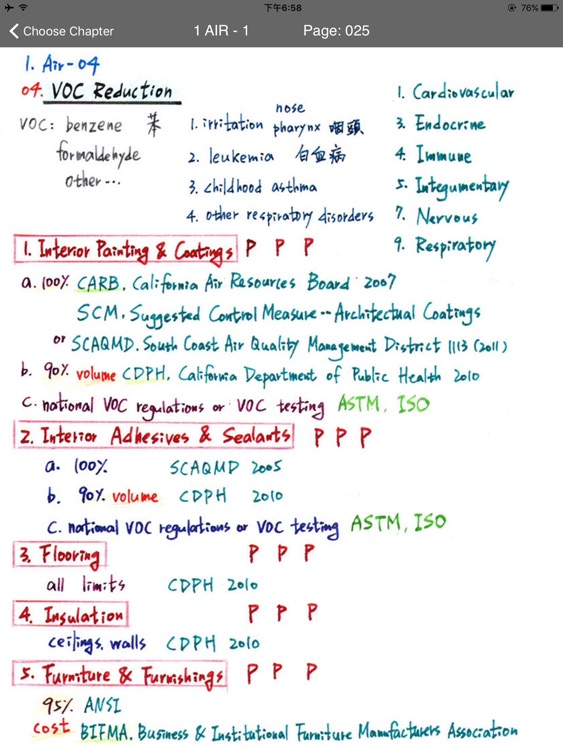 下午6:58
76%
Choose Chapter
1 AIR - 1
Page: 025
1. Air-04
04. VOC Reduction
VOC: benzene 苯
formaldehyde
other...
nose
1. irritation pharynx 咽頭
2. leukemia 白血病
3. childhood asthma
4. other respiratory disorders
1. Cardiovascular
3. Endocrine
4. Immune
5. Integumentary
7. Nervous
9. Respiratory
1. Interior Painting & Coatings P P P
a. 100% CARB. California Air Resources Board 2007
SCM. Suggested Control Measure -- Architectual Coatings
or SCAQMD. South Coast Air Quality Management District 1113 (2011)
b. 90% volume CDPH. California Department of Public Health 2010
c. national VOC regulations or VOC testing ASTM, ISO
2. Interior Adhesives & Sealants P P P
a. 100% SCAQMD 2005
b. 90% volume CDPH 2010
c. national VOC regulations or VOC testing ASTM, ISO
3. Flooring P P P
all limits CDPH 2010
4. Insulation P P P
ceilings. walls CDPH 2010
5. Furniture & Furnishings P P P
95% ANSI
cost BIFMA. Business & Institutional Furniture Manufacturers Association